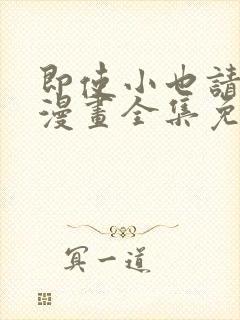 即使小也請
漫畫全集免
冥一道